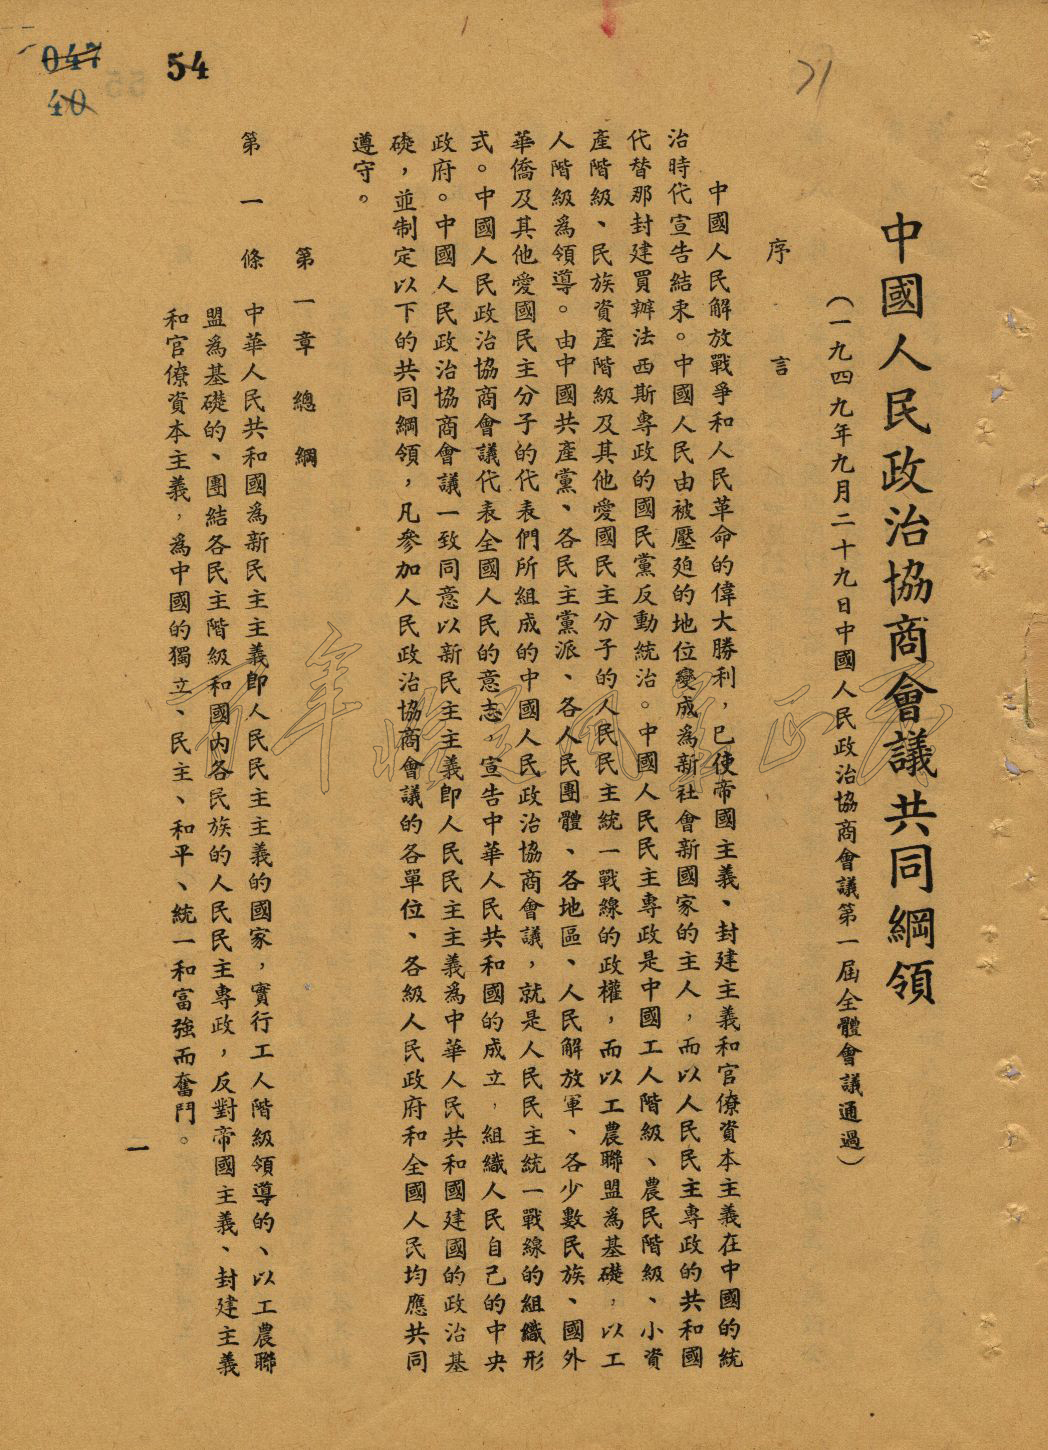 047
40
54
71
中國人民政治協商會議共同綱領
（一九四九年九月二十九日中國人民政治協商會議第一屆全體會議通過）
序言
中國人民解放戰爭和人民革命的偉大勝利，已使帝國主義、封建主義和官僚資本主義在中國的統
治時代宣告結束。中國人民由被壓迫的地位變成為新社會新國家的主人，而以人民民主專政的共和國
代替那封建買辦法西斯專政的國民黨反動統治。中國人民民主專政是中國工人階級、農民階級、小資
產階級、民族資產階級及其他愛國民主分子的人民民主統一戰線的政權，而以工農聯盟為基礎，以工
人階級為領導。由中國共產黨、各民主黨派、各人民團體、各地區、人民解放軍、各少數民族、國外
華僑及其他愛國民主分子的代表們所組成的中國人民政治協商會議，就是人民民主統一戰線的組織形
式。中國人民政治協商會議代表全國人民的意志，宣告中華人民共和國的成立，組織人民自己的中央
政府。中國人民政治協商會議一致同意以新民主主義即人民民主主義為中華人民共和國建國的政治基
礎，並制定以下的共同綱領，凡參加人民政治協商會議的各單位、各級人民政府和全國人民均應共同
遵守。
第一章 總綱
第一條 中華人民共和國為新民主主義即人民民主主義的國家，實行工人階級領導的、以工農聯
盟為基礎的、團結各民主階級和國內各民族的人民民主專政，反對帝國主義、封建主義
和官僚資本主義，為中國的獨立、民主、和平、統一和富強而奮鬥。
一